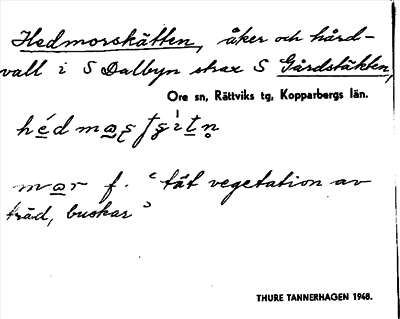 Hedmorskätten, åker och hård-
vall i S Dalbyn strax S Gårdstäkten,
Ore sn, Rättviks tg, Kopparbergs län.
mar f. "tät vegetation av
träd, buskar"
THURE TANNERHAGEN 1948.